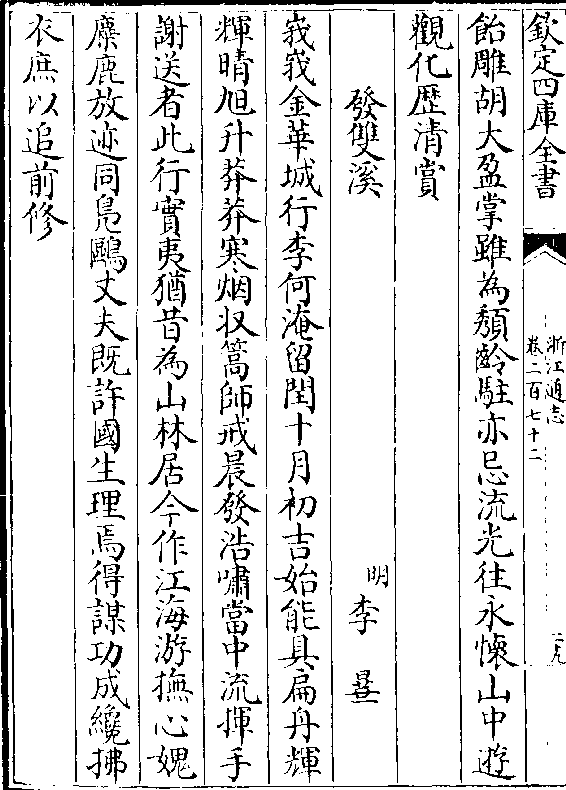 欽定四庫全書
浙江通志
卷二百七十二
飴雕胡大盈掌雖為頽齡駐亦忌流光往永懐山中遊
觀化歴清賞
發雙溪
明
李曅
峩峩金華城行李何淹留閏十月初吉始能具扁舟輝
輝晴旭升莽莽寒烟收篙師戒晨發浩嘯當中流揮手
謝送者此行實夷猶昔為山林居今作江海游撫心媿
麋鹿放迹同鳧鷗丈夫既許國生理焉得謀功成纔拂
衣庶以追前修